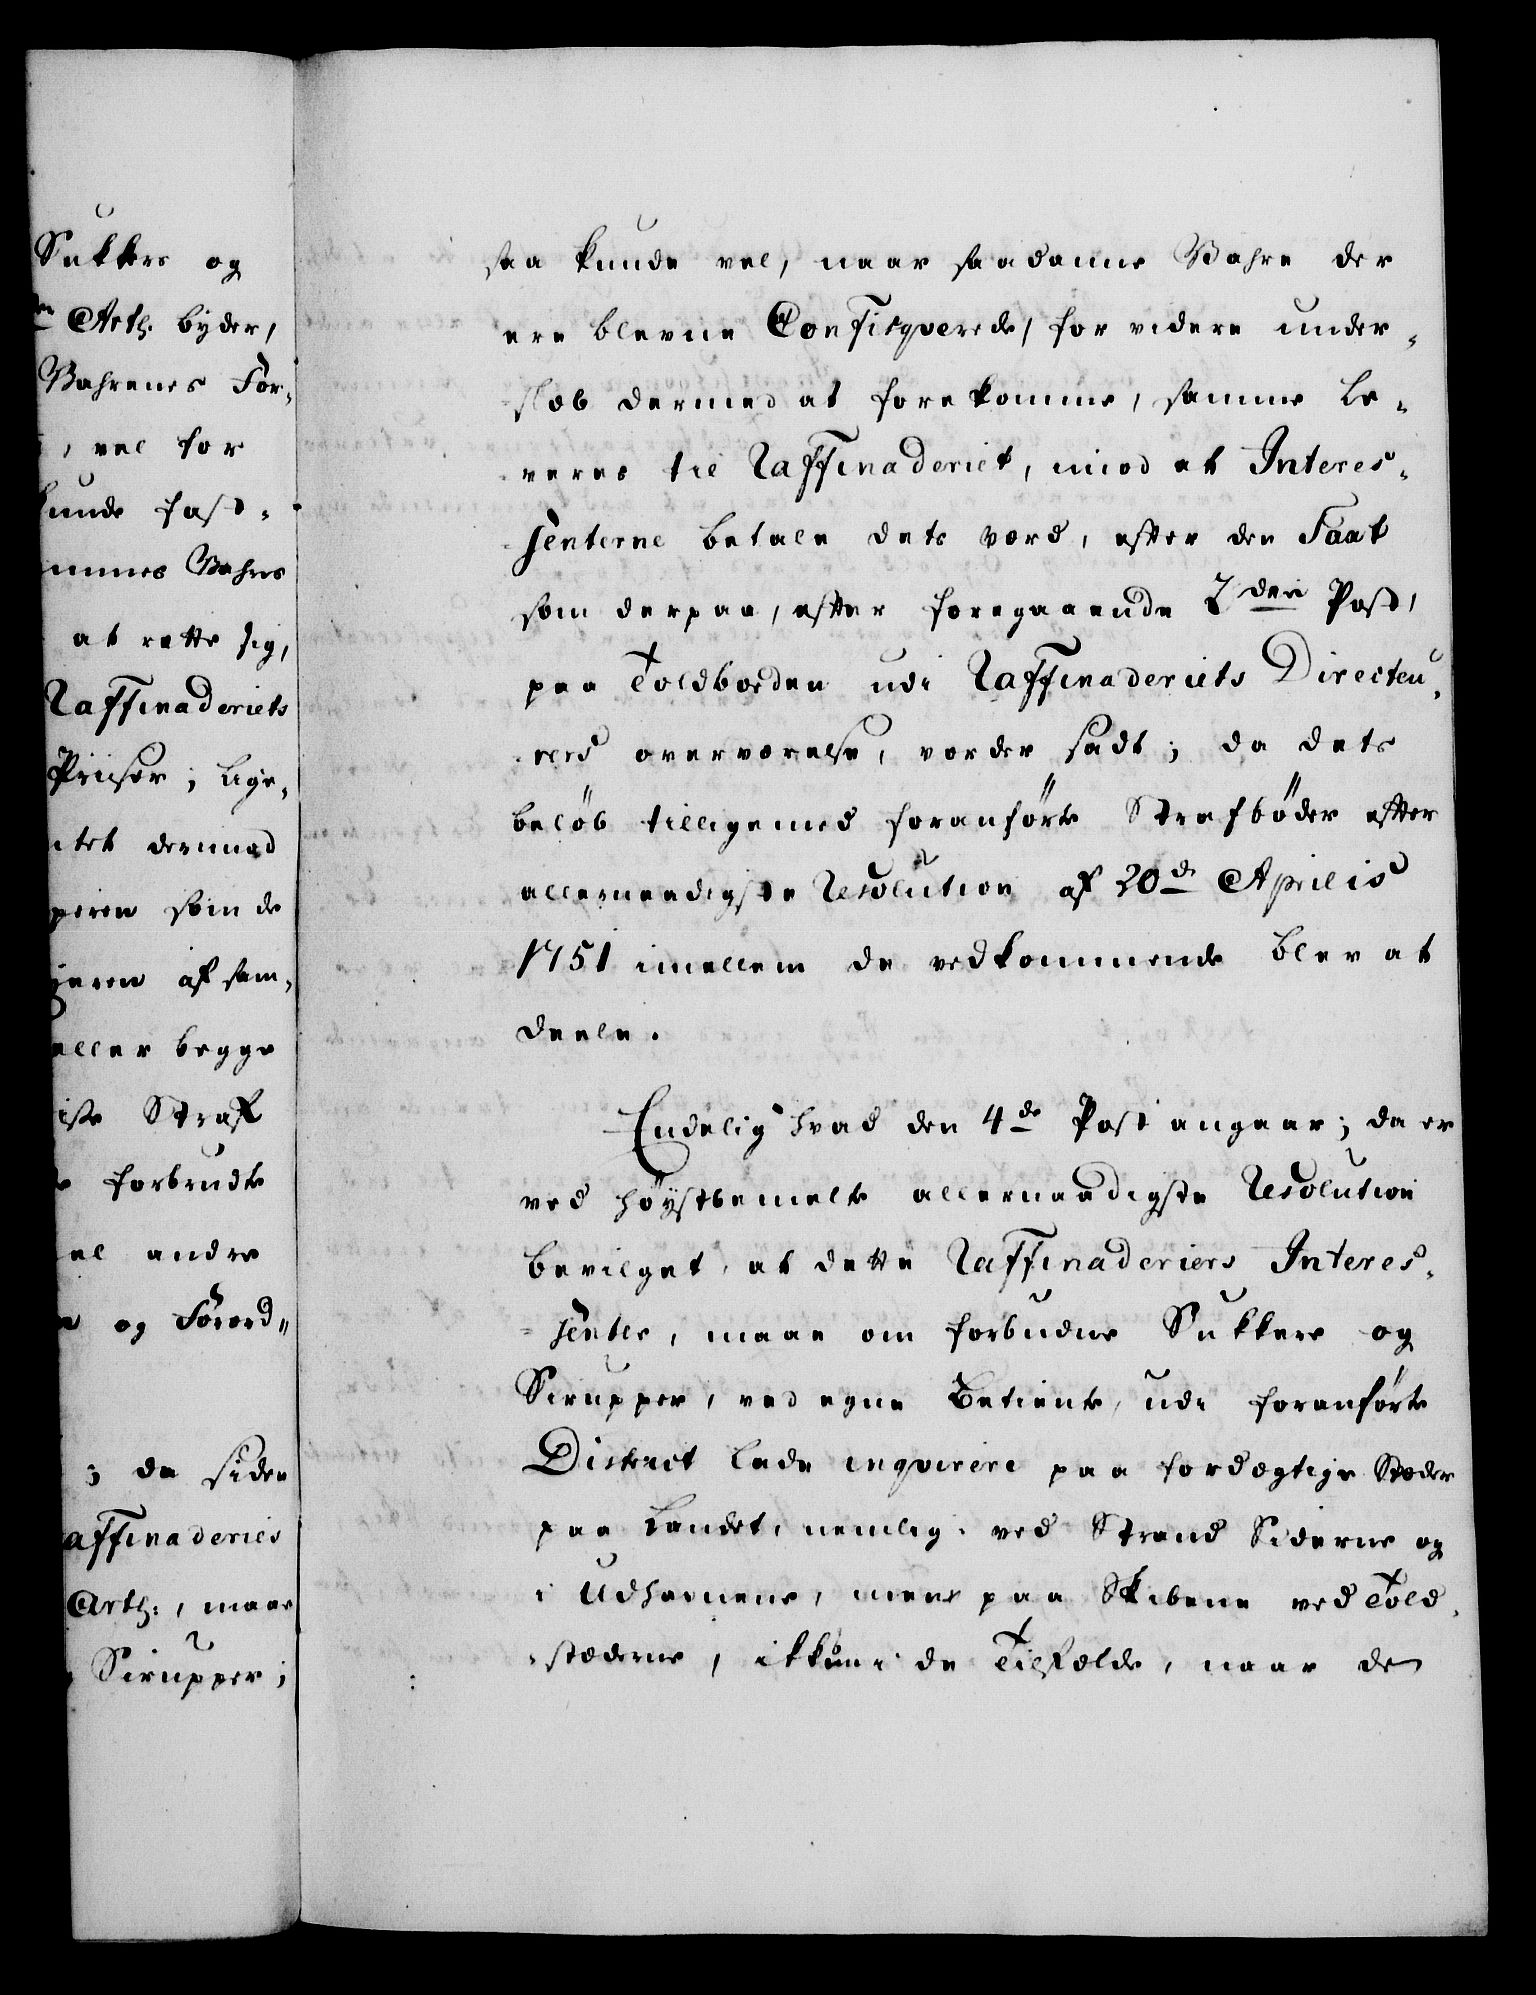 Sukkere og
Arth: byder,
Vahrenes For-
, vel for
kunde fast-
mmes Vahres
at rette sig,
Raffinaderiets
Priiser; lige-
itet dermed
peren som de
jeren af sam-
eller begge
iste Straf
forbrudte
el andre
og Forord"
; da siden
affinaderies
Arth:, maae
Sirupper;
saa kunde vel, naar saadanne Vahre der
ere blevne Confisqverede, for videre under-
-slæb dermed at forekomme, samme le-
-veres til Raffinaderiet, imod at Interes-
-senterne betale dets værd, efter den Taxt
som derpaa, efter foregaaende 2den Post,
paa Toldboeden udi Raffinaderiets Directeu-
-rers overværelse, vorder sadt; da dets
beløb tilligemed foranførte Strafbøder efter
allernaadigste Resolution af 20de Aprilis
1751 imellem de vedkommende blev at
deele.
Endelig hvad den 4de Post angaar; da er
ved høystbemelte allernaadigste Resolution
bevilget, at dette Raffinaderiers Interes-
-senter, maae om forbudne Sukkere og
Sirupper, ved egne Betiente, udi foranførte
District lade inqvirere paa fordægtige Stæder
paa Landet, nemlig: ved Strand Siderne og
i Udhavnene, mens paa Skibene ved Told-
-stæderne, ikkun i de Tilfælde, naar de